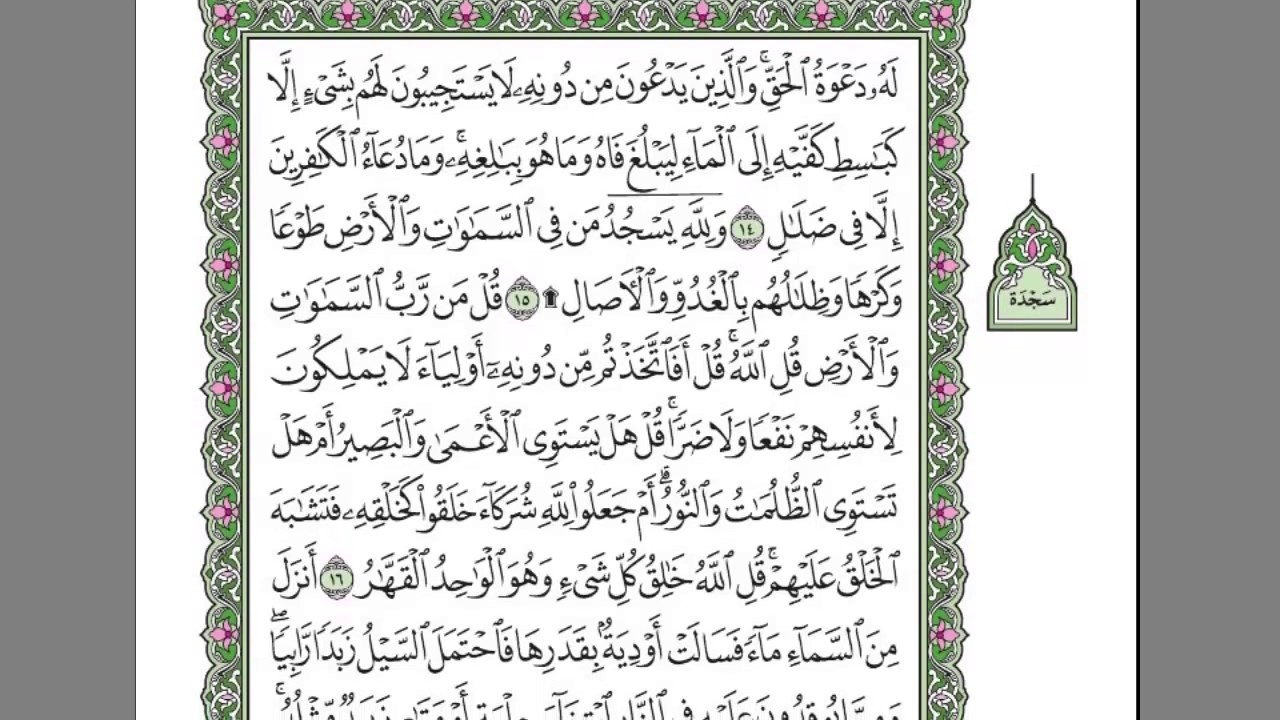 لَهُۥ دَعْوَةُ ٱلْحَقِّۚ وَٱلَّذِينَ يَدْعُونَ مِن دُونِهِۦ لَا يَسْتَجِيبُونَ لَهُم بِشَىْءٍ إِلَّا
كَبَٰسِطِ كَفَّيْهِ إِلَى ٱلْمَآءِ لِيَبْلُغَ فَاهُ وَمَا هُوَ بِبَٰلِغِهِۦۚ وَمَا دُعَآءُ ٱلْكَٰفِرِينَ
إِلَّا فِى ضَلَٰلٍ ١٤ وَلِلَّهِ يَسْجُدُ مَن فِى ٱلسَّمَٰوَٰتِ وَٱلْأَرْضِ طَوْعًا
وَكَرْهًا وَظِلَٰلُهُم بِٱلْغُدُوِّ وَٱلْءَاصَالِ ۩ ١٥ قُلْ مَن رَّبُّ ٱلسَّمَٰوَٰتِ
سَجْدَة
وَٱلْأَرْضِ قُلِ ٱللَّهُۚ قُلْ أَفَٱتَّخَذْتُم مِّن دُونِهِۦٓ أَوْلِيَآءَ لَا يَمْلِكُونَ
لِأَنفُسِهِمْ نَفْعًا وَلَا ضَرًّاۚ قُلْ هَلْ يَسْتَوِى ٱلْأَعْمَىٰ وَٱلْبَصِيرُ أَمْ هَلْ
تَسْتَوِى ٱلظُّلُمَٰتُ وَٱلنُّورُۗ أَمْ جَعَلُوا۟ لِلَّهِ شُرَكَآءَ خَلَقُوا۟ كَخَلْقِهِۦ فَتَشَٰبَهَ
ٱلْخَلْقُ عَلَيْهِمْۚ قُلِ ٱللَّهُ خَٰلِقُ كُلِّ شَىْءٍ وَهُوَ ٱلْوَٰحِدُ ٱلْقَهَّٰرُ ١٦ أَنزَلَ
مِنَ ٱلسَّمَآءِ مَآءً فَسَالَتْ أَوْدِيَةٌۢ بِقَدَرِهَا فَٱحْتَمَلَ ٱلسَّيْلُ زَبَدًا رَّابِيًاۖ
وَمِمَّا يُوقِدُونَ عَلَيْهِ فِى ٱلنَّارِ ٱبْتِغَآءَ حِلْيَةٍ أَوْ مَتَٰعٍ زَبَدٌ مِّثْلُهُۥۚ